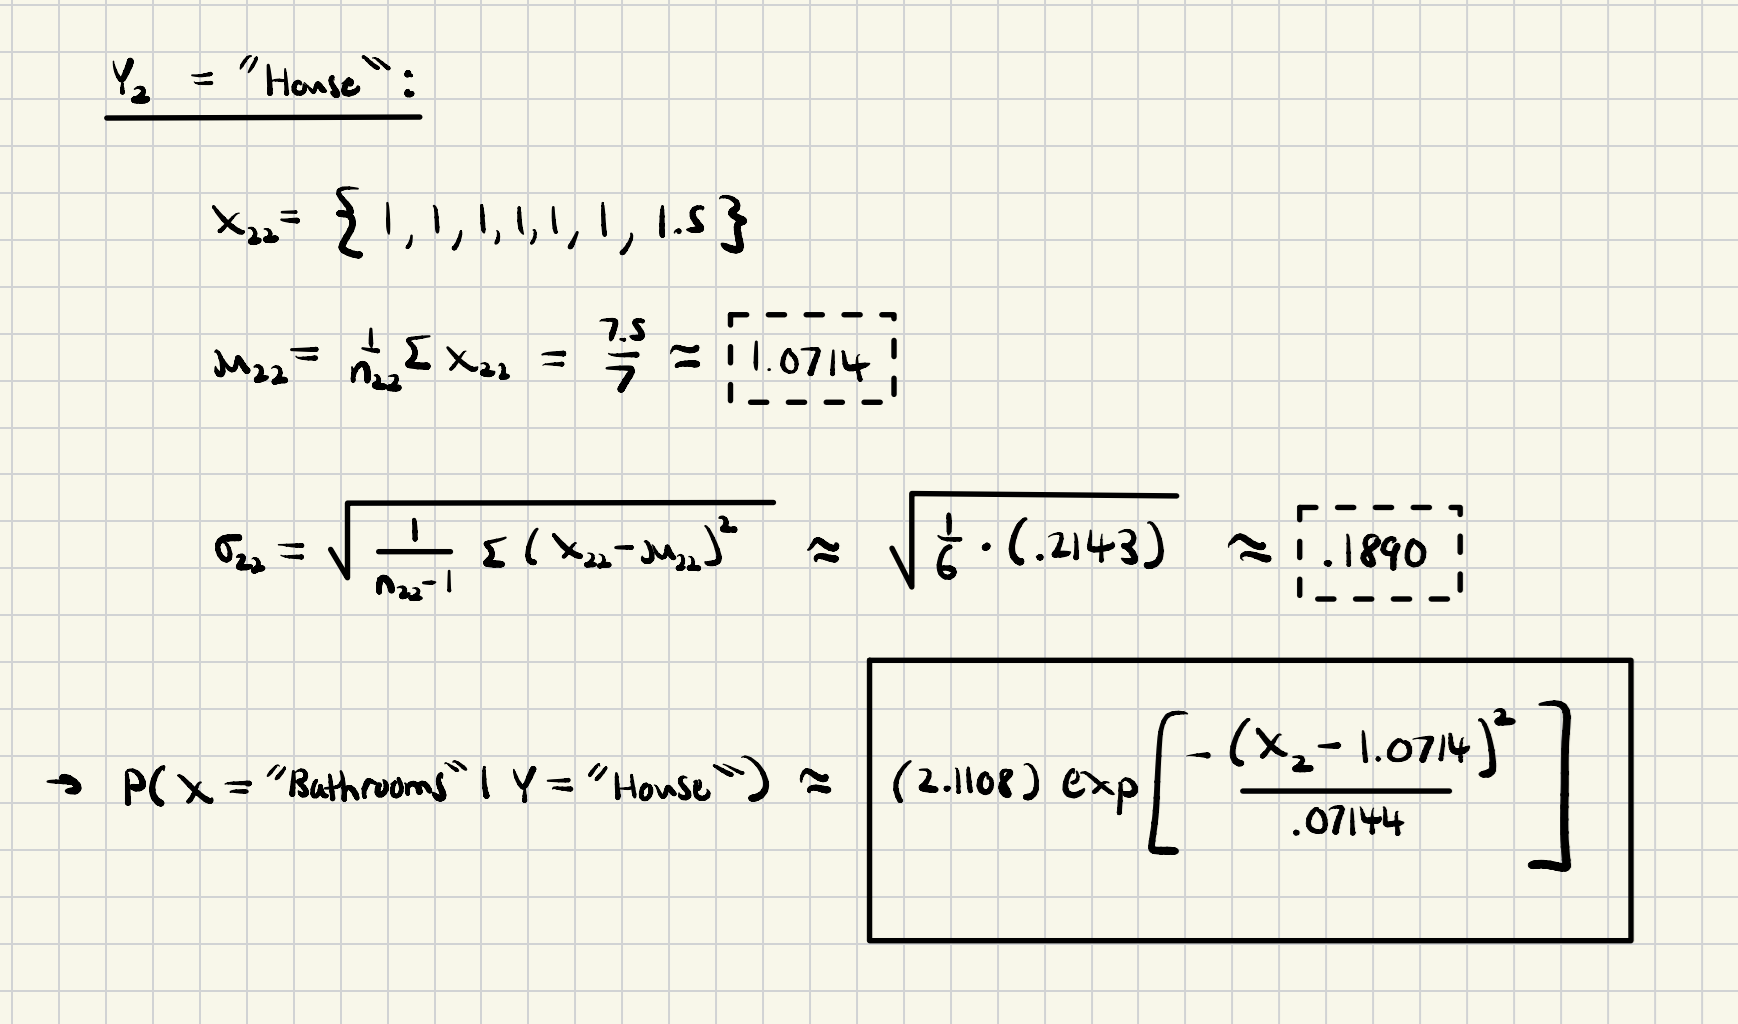 Y₂ = "House":
X₂₂ = { 1, 1, 1, 1, 1, 1, 1.5 }
μ₂₂ = 1/n₂₂ Σ X₂₂ = 7.5/7 ≈ 1.0714
σ₂₂ = √(1/(n₂₂-1) Σ (X₂₂-μ₂₂)²) ≈ √(1/6 · (.2143)) ≈ .1890
→ P( X = "Bathrooms" | Y = "House") ≈ (2.1108) exp[ -(X₂ - 1.0714)²/.07144 ]